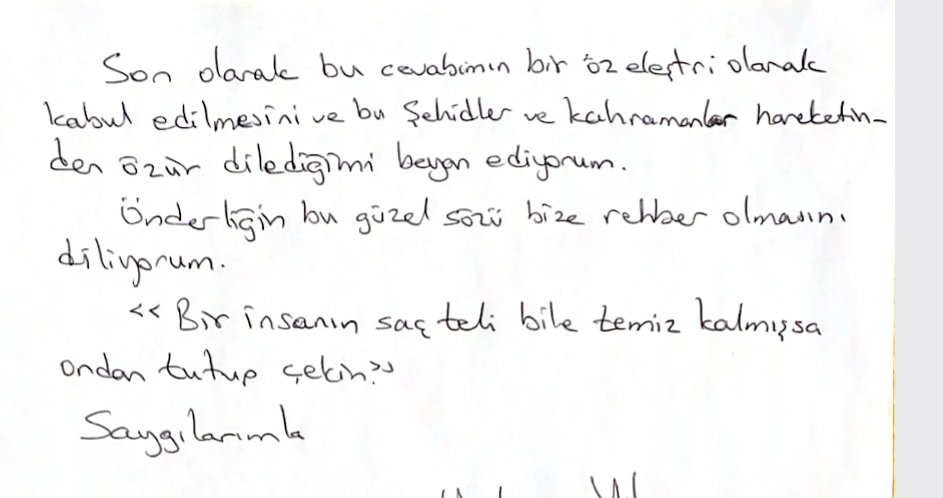 Son olarak bu cevabımın bir öz eleştri olarak
kabul edilmesini ve bu Şehidler ve kahramanlar hareketin-
den özür dilediğimi beyan ediyorum.
Önderliğin bu güzel sözü bize rehber olmasını
diliyorum.
<< Bir insanın saç teli bile temiz kalmışsa
ondan tutup çekin>>
Saygılarımla